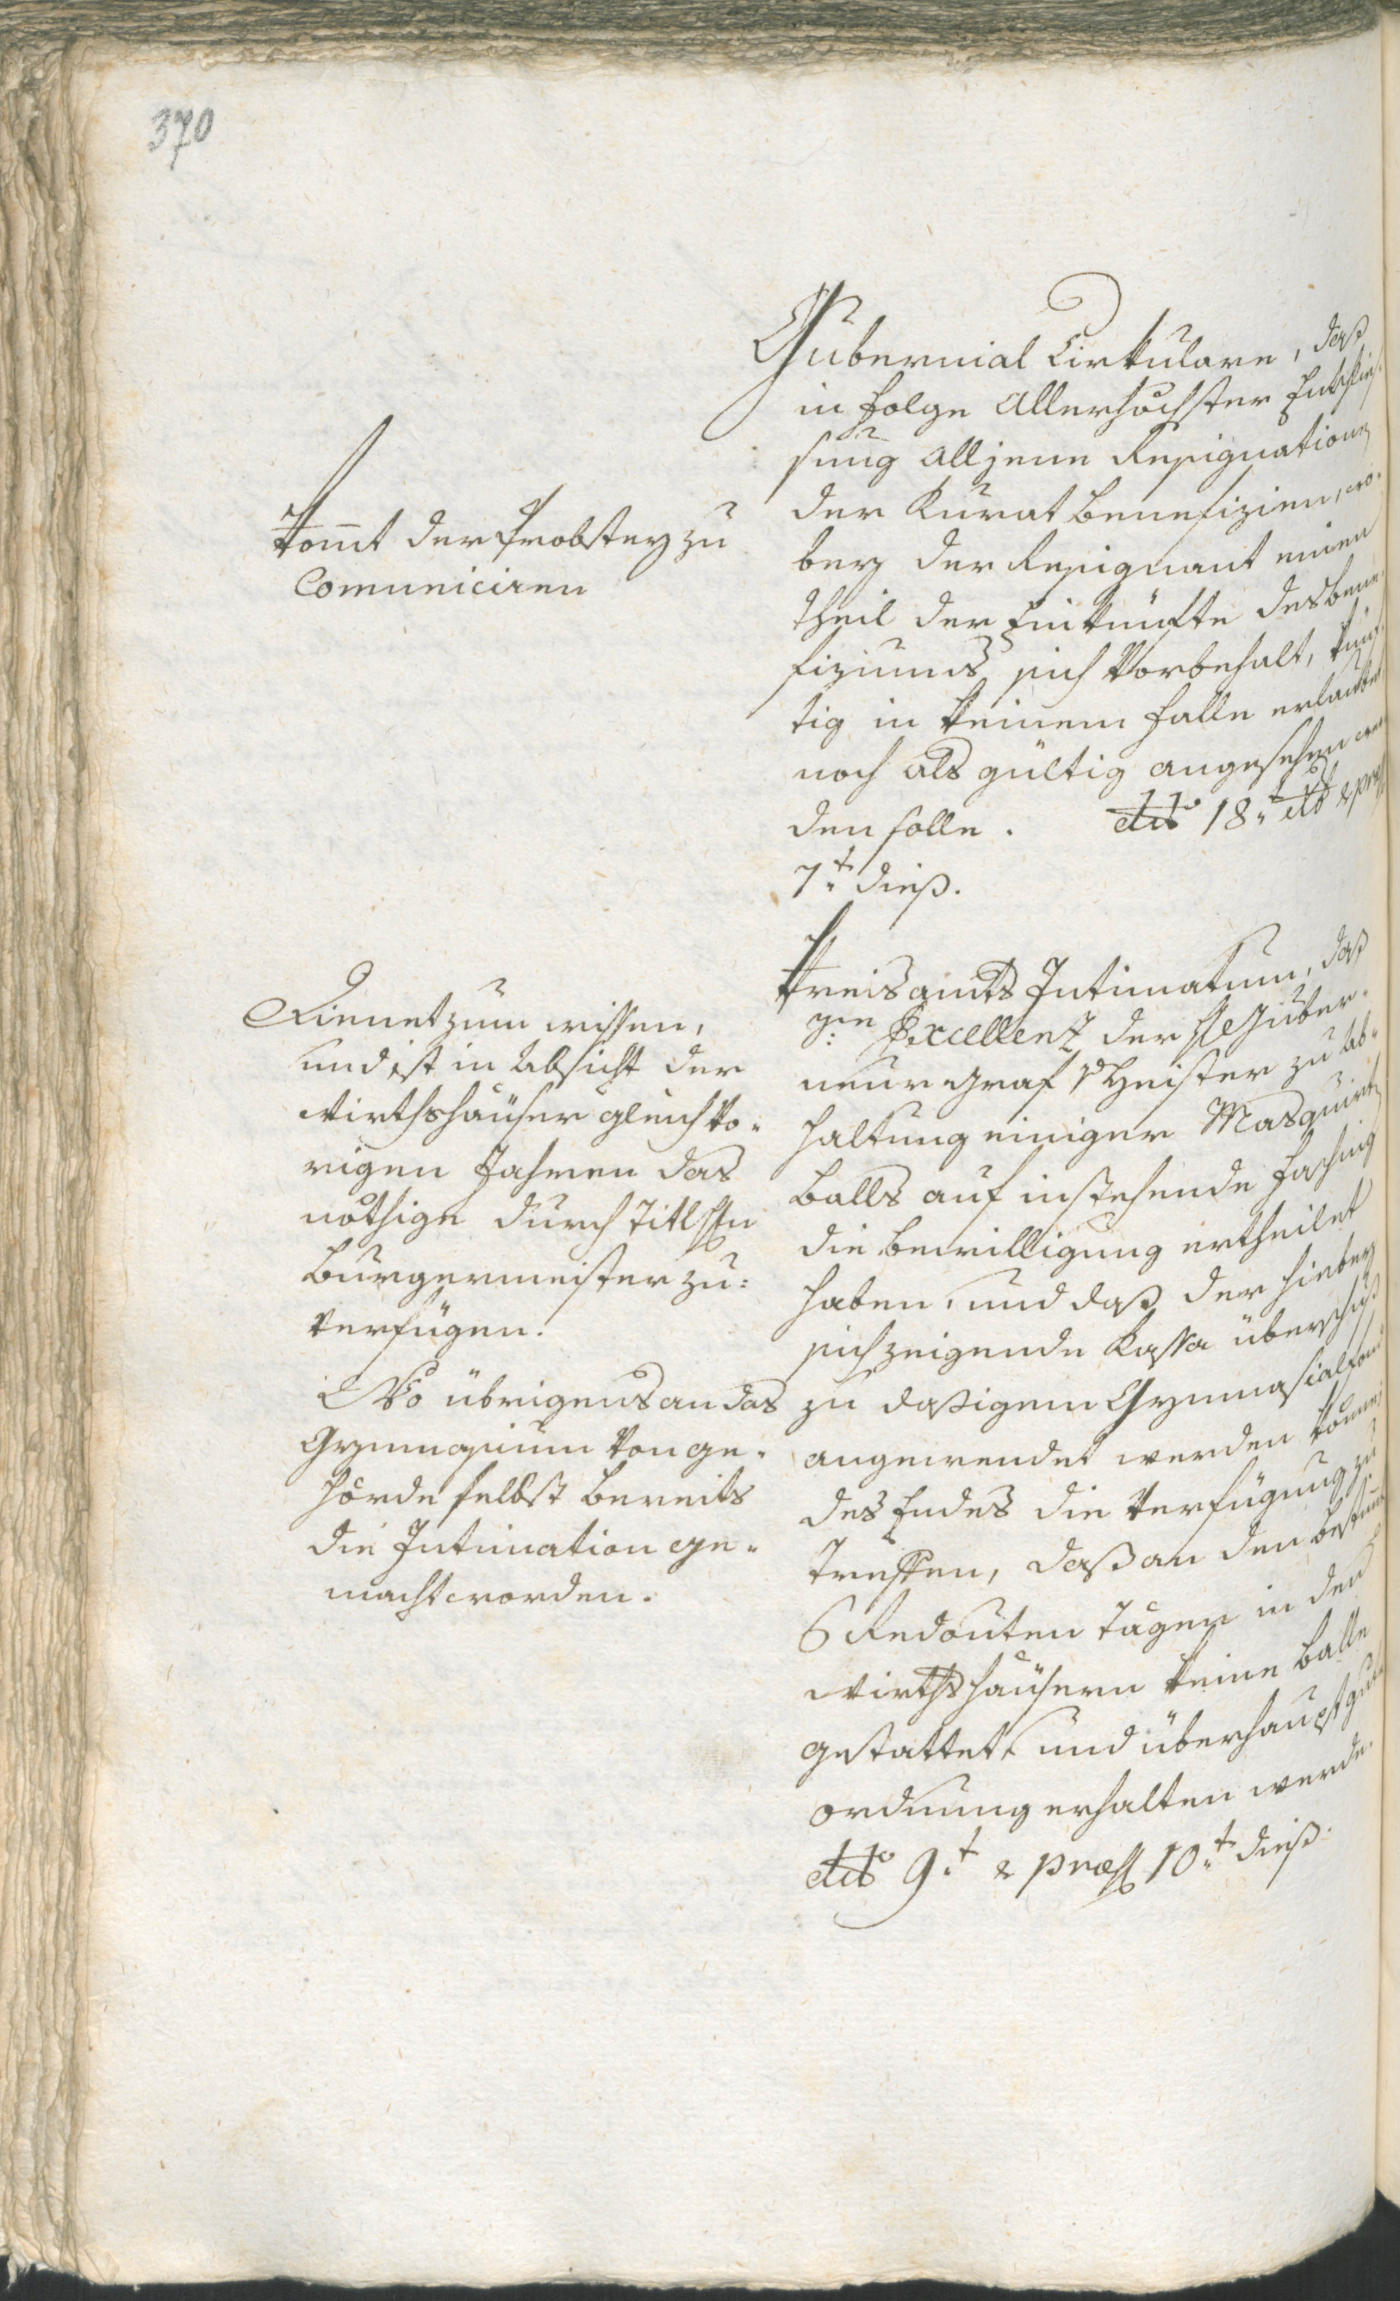 370
Gubernial Cirkulare, daß
in Folge Allerhöchster Entschlies-
sung alljene Resignationen
der Kurat Benefizien, wo-
bey der Resignant einen
Theil der Einkünfte des Bene-
fiziums sich vorbehalt, künf-
tig in keinem Falle erlaubet
noch als gültig angesehen wer-
den solle. dto 18t
7t dieß.
kom̄t der Probstey zu
Comuniciren
Kreisamts Intimatum, daß
Se Excellenz der H Guber-
neur Graf v Heister zu Ab-
haltung einiger Masquirten
Balls auf instehende Fasching
die Bewilligung ertheilet
haben, und daß der hiebey
sich zeigende Kassa überschuß
zu dasigem Gymnasialfond
angewendet werden könne
des Endes die Verfügung zu
treffen, daß an den bestimt
6 Redouten Tägen in den
Wirthshäusern keine Bälle
gestattet, und überhaupt gute
Ordnung erhalten werde.
dto 9t & præs 10t dieß.
Dienet zum wissen,
und ist in Absicht der
Wirthshäuser gleich vo-
rigen Jahren das
nöthige durch Titl Hn
Burgermeister zu
verfügen.
Wo übrigens an das
Gymnasium von ge-
hörde selbst bereits
die Intimation ge-
macht worden.